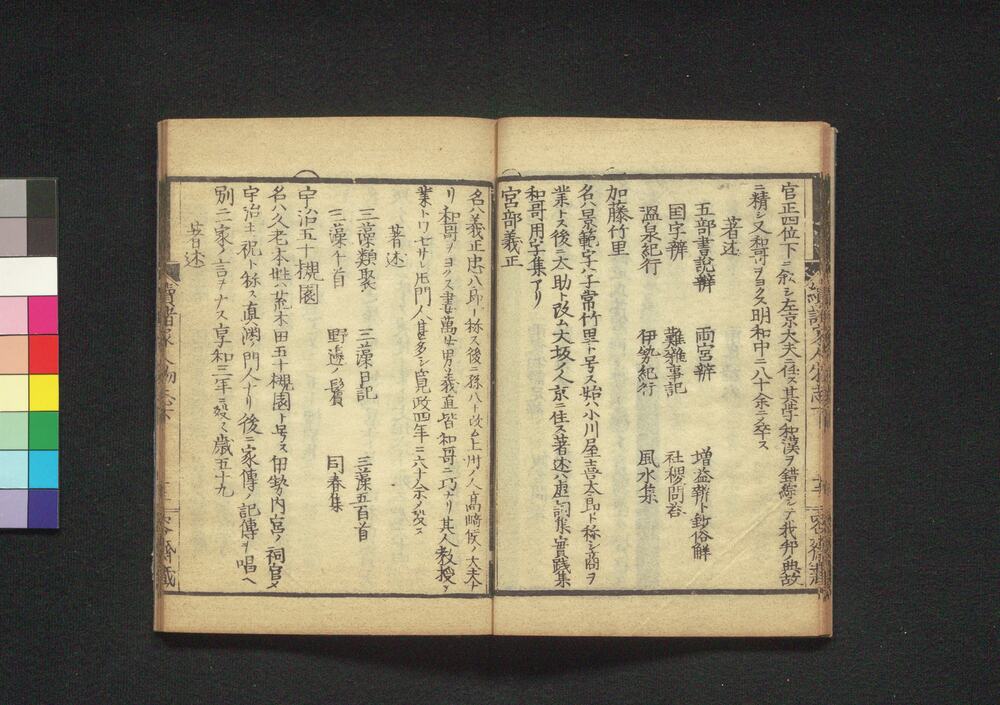 官正四位下ニ叙シ左京大夫ニ任ス其学和漢ヲ錯綜シテ我邦ノ典故
ニ精シ又和哥ヲヨクス明和中ニ八十余ニテ卒ス
著述
五部書説辨　両宮辨　増益辨卜鈔俗解
国字辨　難雑事記　社稷問答
温泉紀行　伊勢紀行　風水集
加藤竹里
名ハ景範字ハ子常竹里ト号ス始ハ小川屋喜太郎ト称シ商ヲ
業トス後ニ太助ト改ム大坂ノ人京ニ住ス著述ハ虚詞集實践集
和哥用字集アリ
宮部義正
名ハ義正忠八郎ト称ス後ニ孫八ト改ム上州ノ人高崎侯ノ大夫ナ
リ和哥ヲヨクス妻萬女男義直皆和哥ニ巧ナリ其人教授ヲ
業トワセサレ𪜈門人甚多シ寛政四年ニ六十余ノ殁ス
著述
三藻類聚　三藻日記　三藻五百首
三藻千首　野邊ノ鬢　同春集
宇治五十槻園
名ハ久老本姓ハ荒木田五十槻園ト号ス伊勢内宮ノ祠官ノ
宇治土祝ト称ス真渕ノ門人ナリ後ニ家傳ノ記傳ヲ唱ヘ
別ニ一家ノ言ヲナス享和三年ニ殁ス歳五十九
著述
續諸家人物志下